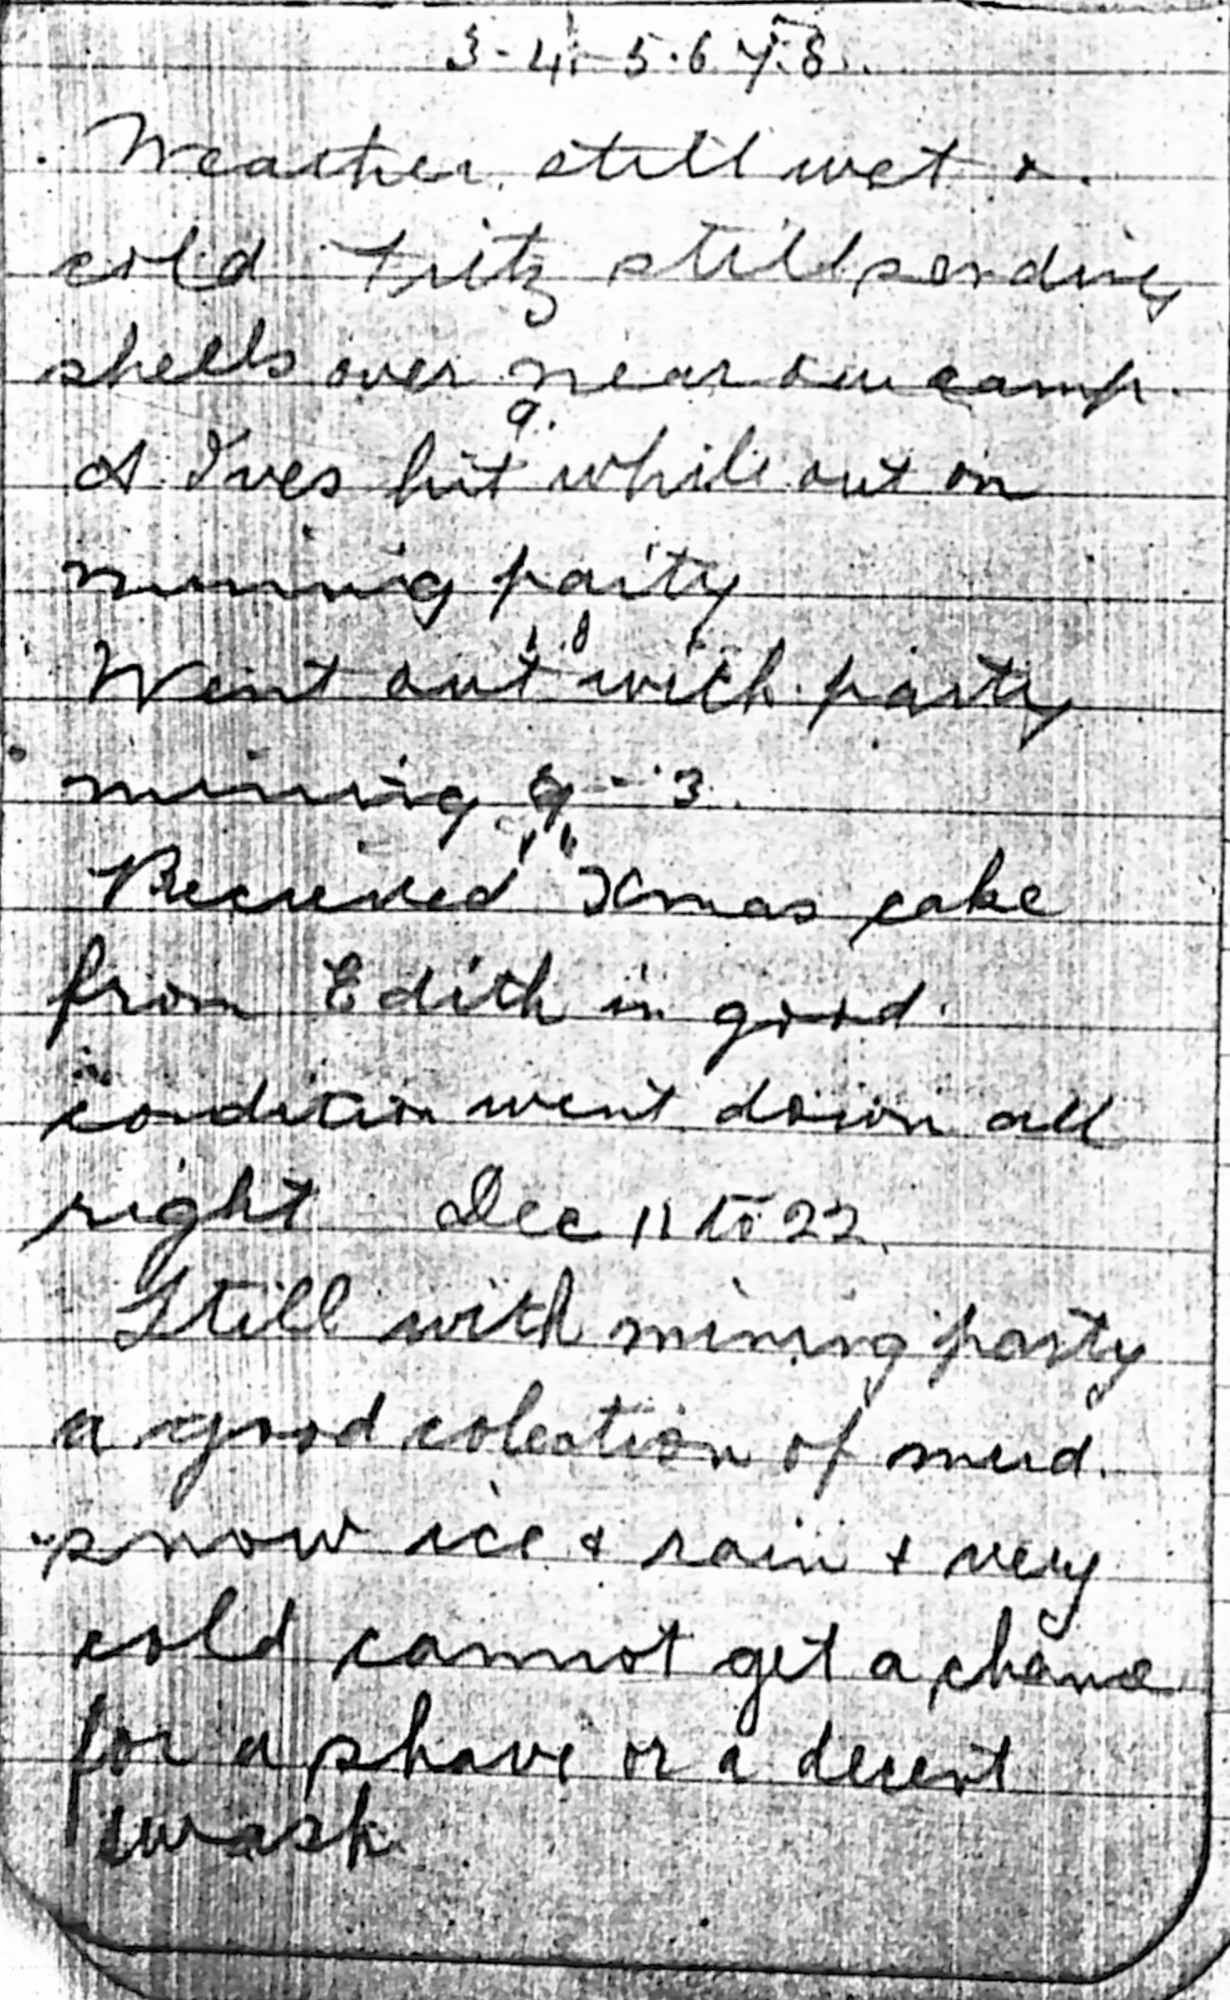 3-4-5.6.7.8.
Weather still wet &
cold Fritz still sending
shells over near our camp.
9.
A Ives hit while out on
mining party
10
Went out with party
mining 9-3.
11
Recieved Xmas cake
from Edith in good
condition went down all
right Dec 11 to 22.
Still with mining party
a good colection of mud
snow ice & rain & very
cold cannot get a chance
for a shave or a decent
wash